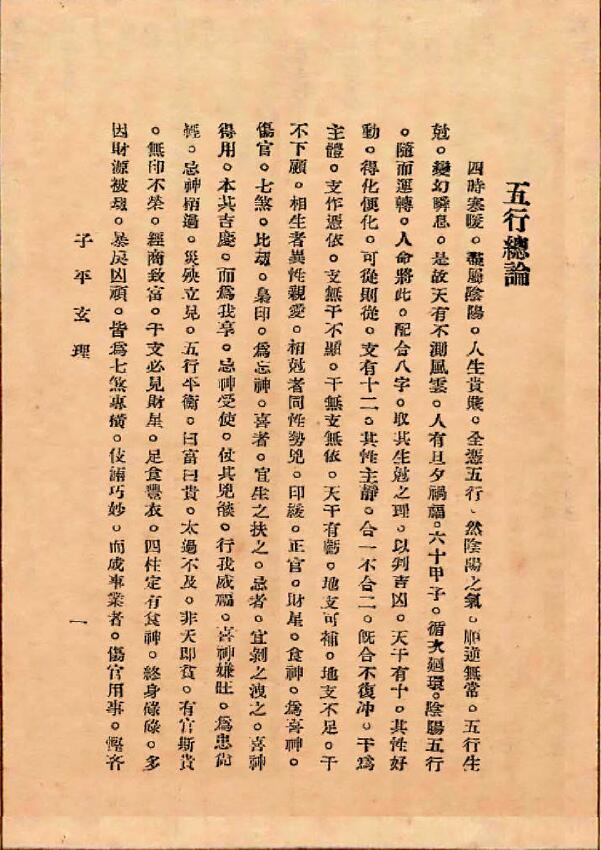 五行總論
四時寒暖。盡屬陰陽。人生貴賤。全憑五行、然陰陽之氣。順逆無常。五行生
尅。變幻瞬息。是故天有不測風雲。人有旦夕禍福。六十甲子。循次廻環。陰陽五行
。隨而運轉。人命將此。配合八字。取其生尅之理。以判吉凶。天干有十。其性好
動。得化便化。可從則從。支有十二。其性主靜。合一不合二。旣合不復冲。干爲
主體。支作憑依。支無干不顯。干無支無依。天干有虧。地支可補。地支不足。干
不下顧。相生者異性親愛。相尅者同性勢兇。印綬。正官。財星。食神。爲喜神。
傷官。七煞。比刼。梟印。爲忌神。喜者。宜生之扶之。忌者。宜剝之洩之。喜神
得用。本其吉慶。而爲我享。忌神受使。仗其兇燄。行我威福。喜神嫌旺。爲患尙
輕。忌神稍過。災殃立見。五行平衡。曰富曰貴。太過不及。非夭即貧。有官斯貴
。無印不榮。經商致富。干支必見財星。足食豐衣。四柱定有食神。終身碌碌。多
因財源被刼。暴戾凶頑。皆爲七煞專橫。伎誦巧妙。而成事業者。傷官用事。慳吝
子平玄理
一